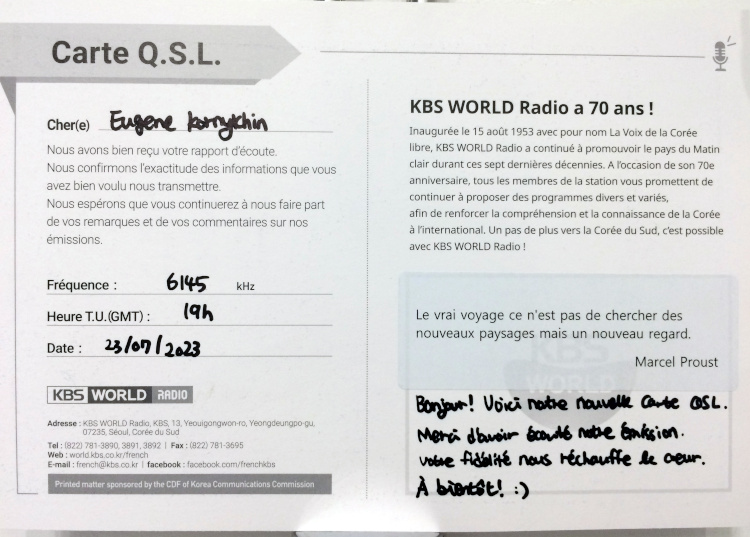 Carte Q.S.L.
Cher(e) Eugene Kornykhin
Nous avons bien reçu votre rapport d'écoute.
Nous confirmons l'exactitude des informations que vous
avez bien voulu nous transmettre.
Nous espérons que vous continuerez à nous faire part
de vos remarques et de vos commentaires sur nos
émissions.
Fréquence : 6145 kHz
Heure T.U.(GMT) : 19h
Date : 23/07/2023
KBS WORLD RADIO
Adresse : KBS WORLD Radio, KBS, 13, Yeouigongwon-ro, Yeongdeungpo-gu,
07235, Séoul, Corée du Sud
Tel : (822) 781-3890, 3891, 3892 | Fax : (822) 781-3695
Web : world.kbs.co.kr/french
E-mail : french@kbs.co.kr | facebook : facebook.com/frenchkbs
Printed matter sponsored by the CDF of Korea Communications Commission
KBS WORLD Radio a 70 ans !
Inaugurée le 15 août 1953 avec pour nom La Voix de la Corée
libre, KBS WORLD Radio a continué à promouvoir le pays du Matin
clair durant ces sept dernières décennies. A l'occasion de son 70e
anniversaire, tous les membres de la station vous promettent de
continuer à proposer des programmes divers et variés,
afin de renforcer la compréhension et la connaissance de la Corée
à l'international. Un pas de plus vers la Corée du Sud, c'est possible
avec KBS WORLD Radio !
Le vrai voyage ce n'est pas de chercher des
nouveaux paysages mais un nouveau regard.
Marcel Proust
KBS
WORLD
Bonjour! Voici notre nouvelle Carte QSL.
Merci d'avoir écouté notre émission.
votre fidélité nous réchauffe le cœur.
À bientôt! :)